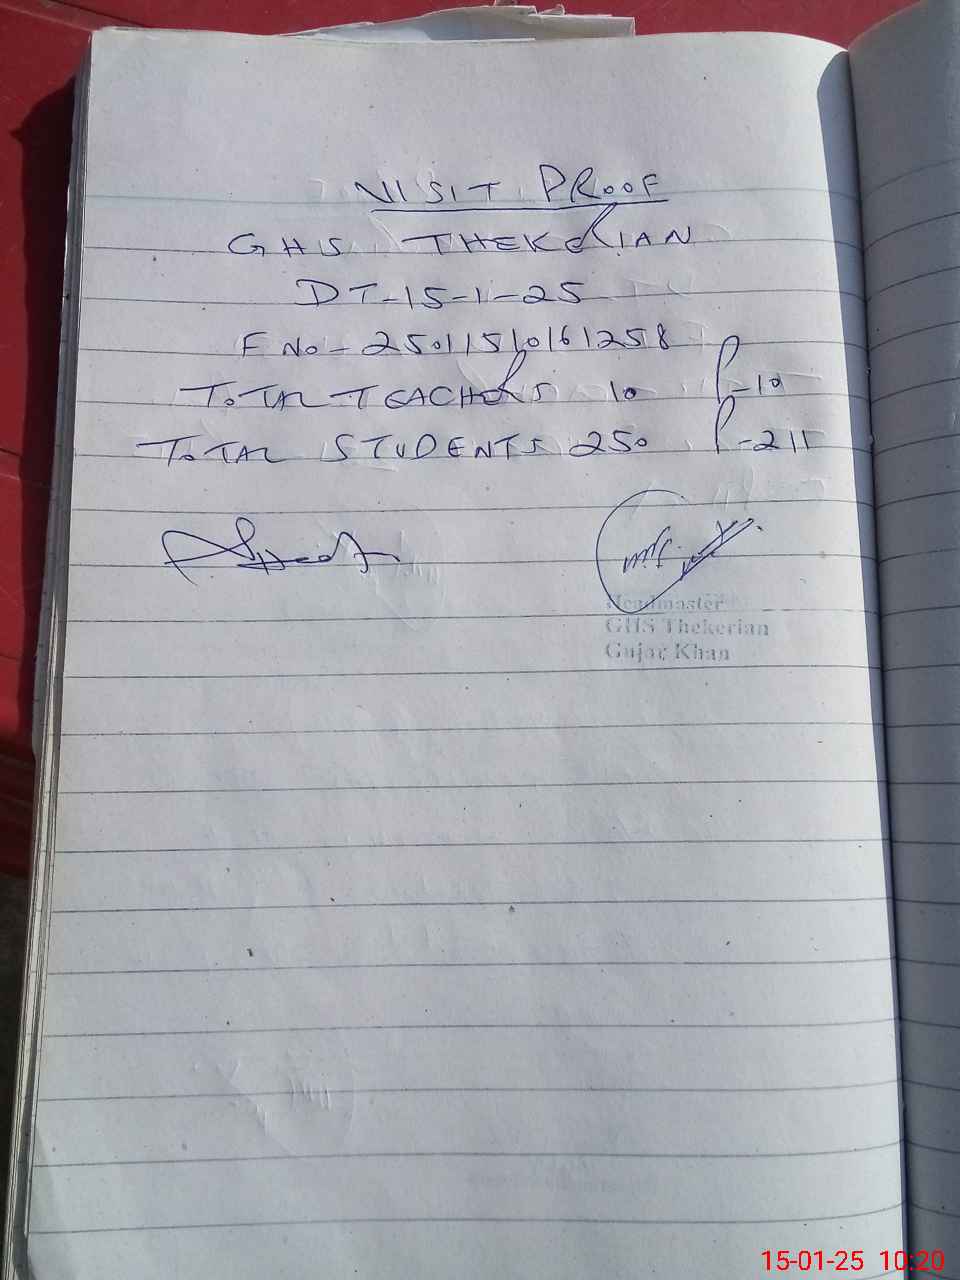 VISIT PROOF
GHS THEKERIAN
DT-15-1-25
F No- 25011510161258
TOTAL TEACHERS 10 P-10
TOTAL STUDENTS 250 P-211
Headmaster
GHS Thekerian
Gujar Khan
15-01-25 10:20